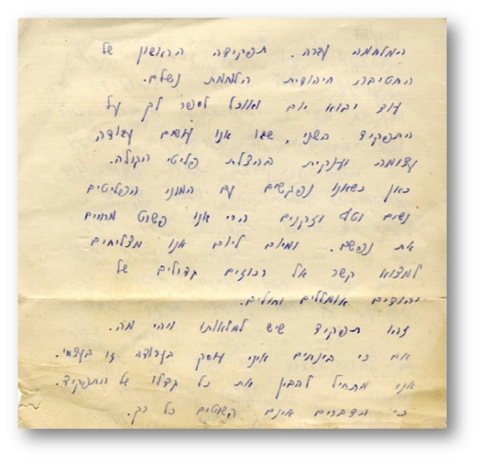 המלחמה עברה. תפקידה הראשון של
החטיבה היהודית הלוחמת נשלם.
עוד יבוא יום ואוכל לספר לך על
התפקיד השני, שבו אנו עושים עבודה
עצומה וענקית בהצלת פליטי הגולה.
כאן כשאנו נפגשים עם המוני הפליטים
נשים וטף וזקנים הרי אנו פשוט מחיים
את נפשם. ומיום ליום אנו מצליחים
למצוא קשר אל רכוזים גדולים של
יהודים אומללים וחולים.
זהו תפקיד שיש למלאותו ויהי מה.
אם כי בינתים איני עוסק בעבודה זו בעצמי.
אני מתחיל להבין את כל גדלו של התפקיד.
כי הדברים אינם פשוטים כל כך.